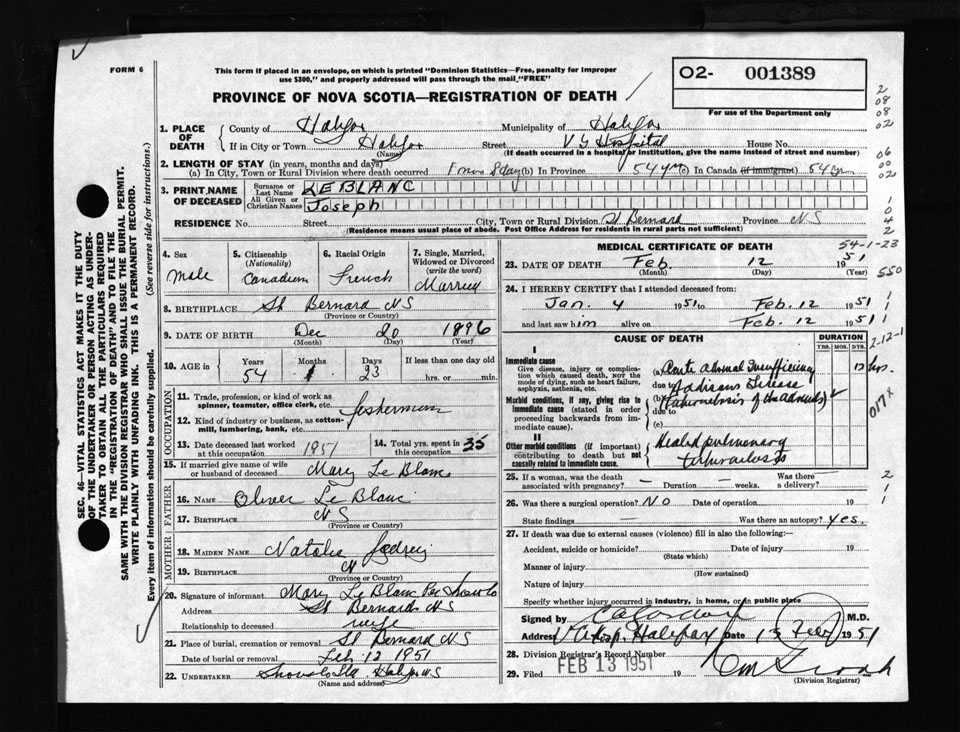 FORM 6
This form if placed in an envelope, on which is printed "Dominion Statistics—Free, penalty for improper
use $300," and properly addressed will pass through the mail "FREE"
O2- 001389
For use of the Department only
PROVINCE OF NOVA SCOTIA—REGISTRATION OF DEATH
1. PLACE OF DEATH
County of Halifax Municipality of Halifax
If in City or Town Halifax Street V G Hospital House No.
(Name) (If death occurred in a hospital or institution, give the name instead of street and number)
2. LENGTH OF STAY (in years, months and days)
(a) In City, Town or Rural Division where death occurred 1 mos 8 day (b) In Province 54 yrs (c) In Canada (if immigrant) 54 yrs
3. PRINT NAME OF DECEASED
Surname or Last Name LEBLANC
All Given or Christian Names Joseph
RESIDENCE No. Street City, Town or Rural Division St Bernard Province NS
(Residence means usual place of abode. Post Office Address for residents in rural parts not sufficient)
4. Sex Male
5. Citizenship (Nationality) Canadian
6. Racial Origin French
7. Single, Married, Widowed or Divorced (write the word) Married
8. BIRTHPLACE St Bernard NS
(Province or Country)
9. DATE OF BIRTH Dec 20 1896
(Month) (Day) (Year)
10. AGE in Years Months Days If less than one day old
54 1 23 hrs. or min.
OCCUPATION
11. Trade, profession, or kind of work as spinner, teamster, office clerk, etc. fisherman
12. Kind of industry or business, as cotton-mill, lumbering, bank, etc.
13. Date deceased last worked at this occupation 1951
14. Total yrs. spent in this occupation 35
15. If married give name of wife or husband of deceased Mary Le Blanc
FATHER
16. NAME Oliver Le Blanc
17. BIRTHPLACE NS
(Province or Country)
MOTHER
18. MAIDEN NAME Natalie
19. BIRTHPLACE N
(Province or Country)
20. Signature of informant Mary Le Blanc Per
Address St Bernard NS
Relationship to deceased wife
21. Place of burial, cremation or removal St Bernard NS
Date of burial or removal Feb 12 1951
22. UNDERTAKER Halifax NS
(Name and address)
MEDICAL CERTIFICATE OF DEATH
54-1-23
23. DATE OF DEATH Feb. 12 1951
(Month) (Day) (Year)
24. I HEREBY CERTIFY that I attended deceased from:
Jan. 4 1951 to Feb. 12 1951
and last saw him alive on Feb. 12 1951
CAUSE OF DEATH DURATION
YRS. MOS. DYS.
I
Immediate cause
Give disease, injury or complication which caused death, NOT the mode of dying, such as heart failure, asphyxia, asthenia, etc.
(a) Acute adrenal Insufficiency 12 hrs.
due to
Morbid conditions, if any, giving rise to immediate cause (stated in order proceeding backwards from immediate cause).
(b) Addisons Disease
(tuberculosis of the adrenals)
due to
(c)
II
Other morbid conditions (if important) contributing to death but not causally related to immediate cause.
Healed pulmonary
tuberculosis
25. If a woman, was the death associated with pregnancy? — Duration — weeks. Was there a delivery? —
26. Was there a surgical operation? NO Date of operation 19
State findings — Was there an autopsy? Yes.
27. If death was due to external causes (violence) fill in also the following:—
Accident, suicide or homicide? Date of injury 19
(State which)
Manner of injury
(How sustained)
Nature of injury
Specify whether injury occurred in industry, in home, or in public place
Signed by M.D.
Address Halifax Date 13 Feb 1951
28. Division Registrar's Record Number
29. Filed FEB 13 1951 19
(Division Registrar)
SEC. 46—VITAL STATISTICS ACT MAKES IT THE DUTY
OF THE UNDERTAKER OR PERSON ACTING AS UNDER-
TAKER TO OBTAIN ALL THE PARTICULARS REQUIRED
IN THE "REGISTRATION OF DEATH" AND TO FILE THE
SAME WITH THE DIVISION REGISTRAR WHO SHALL ISSUE THE BURIAL PERMIT.
WRITE PLAINLY WITH UNFADING INK. THIS IS A PERMANENT RECORD.
Every item of information should be carefully supplied. (See reverse side for instructions.)
2
08
08
02
06
00
02
1
0
4
2
550
1
1
1
2-12-1
017x
2
1
1